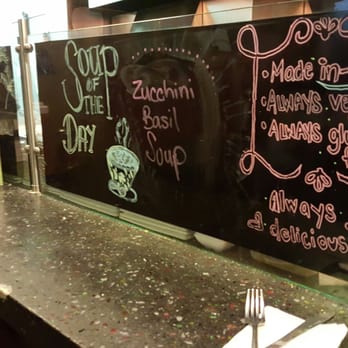 Soup
of the
Day
Zucchini
Basil
Soup
· Made in-
· ALWAYS
· ALWAYS
Always
delicious